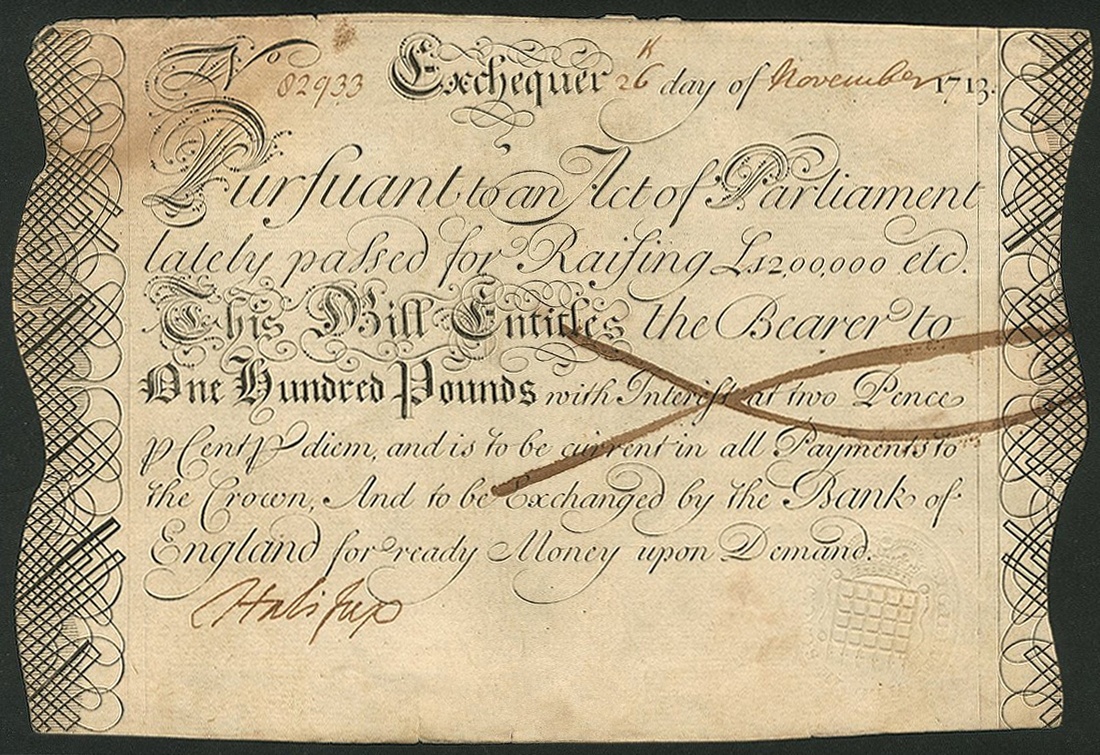 No 82933 Exchequer 26 day of November 1713.
Purſuant to an Act of Parliament
lately paſsed for Raiſing £1200,000 etc.
This Bill Entitles the Bearer to
One Hundred Pounds with Intereſt at two Pence
p Cent p diem, and is to be current in all Payments to
the Crown, And to be Exchanged by the Bank of
England for ready Money upon Demand.
Halifax